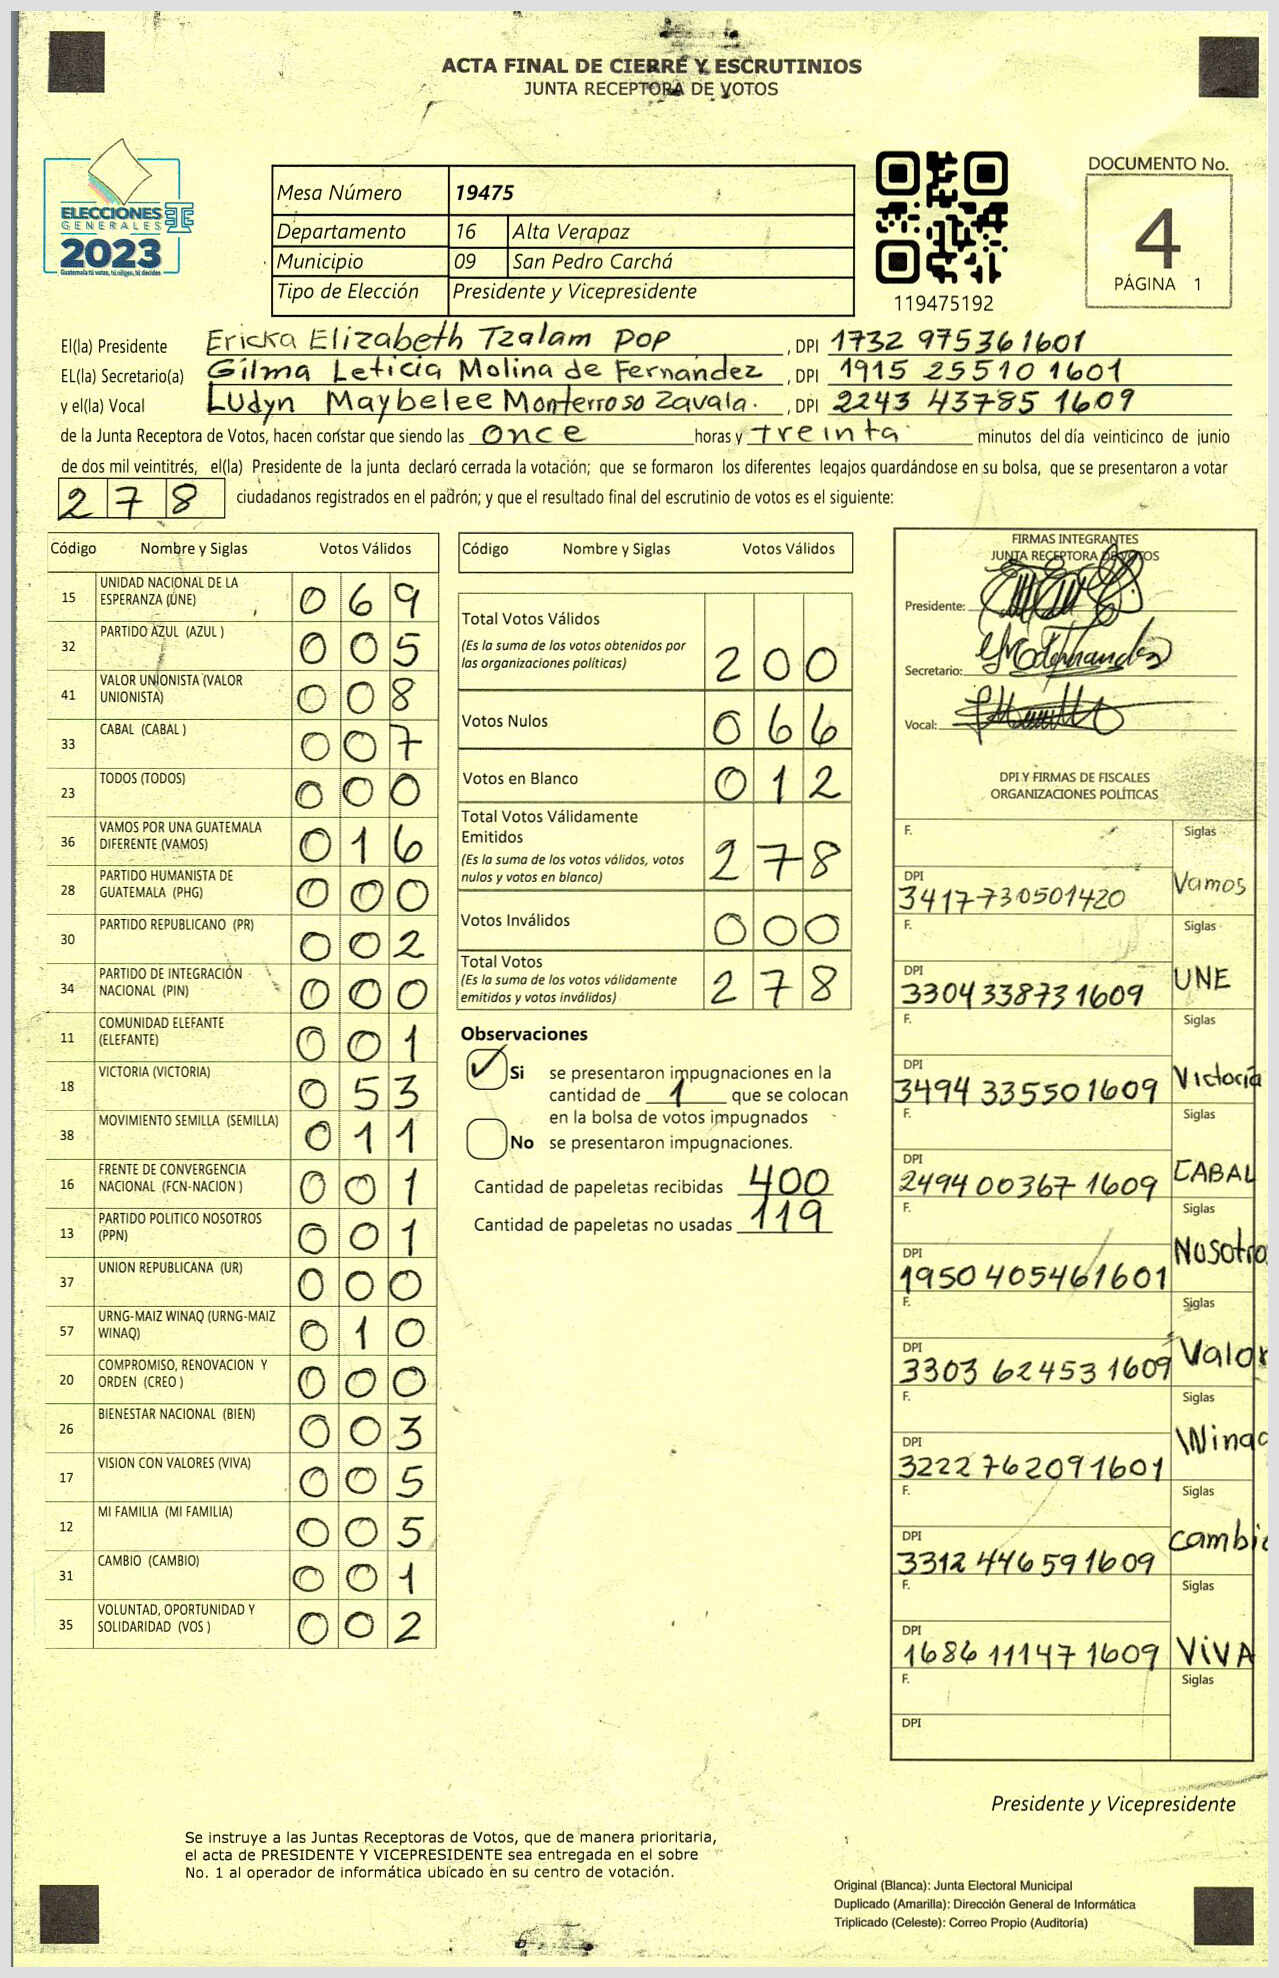 ACTA FINAL DE CIERRE Y ESCRUTINIOS
JUNTA RECEPTORA DE VOTOS
ELECCIONES
GENERALES
2023
Guatemala tú votas, tú eliges, tú decides
Mesa Número 19475
Departamento 16 Alta Verapaz
Municipio 09 San Pedro Carchá
Tipo de Elección Presidente y Vicepresidente
119475192
DOCUMENTO No.
4
PÁGINA 1
El(la) Presidente Ericka Elizabeth Tzalam Pop, DPI 1732 97536 1601
EL(la) Secretario(a) Gilma Leticia Molina de Fernandez, DPI 1915 25510 1601
y el(la) Vocal Ludyn Maybelee Monterroso Zavala., DPI 2243 43785 1609
de la Junta Receptora de Votos, hacen constar que siendo las once horas y treinta minutos del día veinticinco de junio
de dos mil veintitrés, el(la) Presidente de la junta declaró cerrada la votación; que se formaron los diferentes legajos guardándose en su bolsa, que se presentaron a votar
278 ciudadanos registrados en el padrón; y que el resultado final del escrutinio de votos es el siguiente:
Código Nombre y Siglas Votos Válidos
15 UNIDAD NACIONAL DE LA ESPERANZA (UNE) 069
32 PARTIDO AZUL (AZUL ) 005
41 VALOR UNIONISTA (VALOR UNIONISTA) 008
33 CABAL (CABAL ) 007
23 TODOS (TODOS) 000
36 VAMOS POR UNA GUATEMALA DIFERENTE (VAMOS) 016
28 PARTIDO HUMANISTA DE GUATEMALA (PHG) 000
30 PARTIDO REPUBLICANO (PR) 002
34 PARTIDO DE INTEGRACIÓN NACIONAL (PIN) 000
11 COMUNIDAD ELEFANTE (ELEFANTE) 001
18 VICTORIA (VICTORIA) 053
38 MOVIMIENTO SEMILLA (SEMILLA) 011
16 FRENTE DE CONVERGENCIA NACIONAL (FCN-NACION ) 001
13 PARTIDO POLITICO NOSOTROS (PPN) 001
37 UNION REPUBLICANA (UR) 000
57 URNG-MAIZ WINAQ (URNG-MAIZ WINAQ) 010
20 COMPROMISO, RENOVACION Y ORDEN (CREO ) 000
26 BIENESTAR NACIONAL (BIEN) 003
17 VISION CON VALORES (VIVA) 005
12 MI FAMILIA (MI FAMILIA) 005
31 CAMBIO (CAMBIO) 001
35 VOLUNTAD, OPORTUNIDAD Y SOLIDARIDAD (VOS ) 002
Código Nombre y Siglas Votos Válidos
Total Votos Válidos 200
(Es la suma de los votos obtenidos por
las organizaciones políticas)
Votos Nulos 066
Votos en Blanco 012
Total Votos Válidamente
Emitidos 278
(Es la suma de los votos válidos, votos
nulos y votos en blanco)
Votos Inválidos 000
Total Votos 278
(Es la suma de los votos válidamente
emitidos y votos inválidos)
Observaciones
✓ Si se presentaron impugnaciones en la
cantidad de 1 que se colocan
en la bolsa de votos impugnados
No se presentaron impugnaciones.
Cantidad de papeletas recibidas 400
Cantidad de papeletas no usadas 119
FIRMAS INTEGRANTES
JUNTA RECEPTORA DE VOTOS
Presidente:
Secretario:
Vocal:
DPI Y FIRMAS DE FISCALES
ORGANIZACIONES POLÍTICAS
F. Siglas
DPI 3417730501420 Vamos
F. Siglas
DPI 3304 33873 1609 UNE
F. Siglas
DPI 3494 33550 1609 Victoria
F. Siglas
DPI 2494 00367 1609 CABAL
F. Siglas
DPI 1950 40546 1601 Nosotro
F. Siglas
DPI 3303 62453 1609 Valor
F. Siglas
DPI 3222 76209 1601 Winaq
F. Siglas
DPI 3312 44659 1609 cambio
F. Siglas
DPI 1686 11147 1609 ViVA
F. Siglas
DPI
Presidente y Vicepresidente
Se instruye a las Juntas Receptoras de Votos, que de manera prioritaria,
el acta de PRESIDENTE Y VICEPRESIDENTE sea entregada en el sobre
No. 1 al operador de informática ubicado en su centro de votación.
Original (Blanca): Junta Electoral Municipal
Duplicado (Amarilla): Dirección General de Informática
Triplicado (Celeste): Correo Propio (Auditoría)